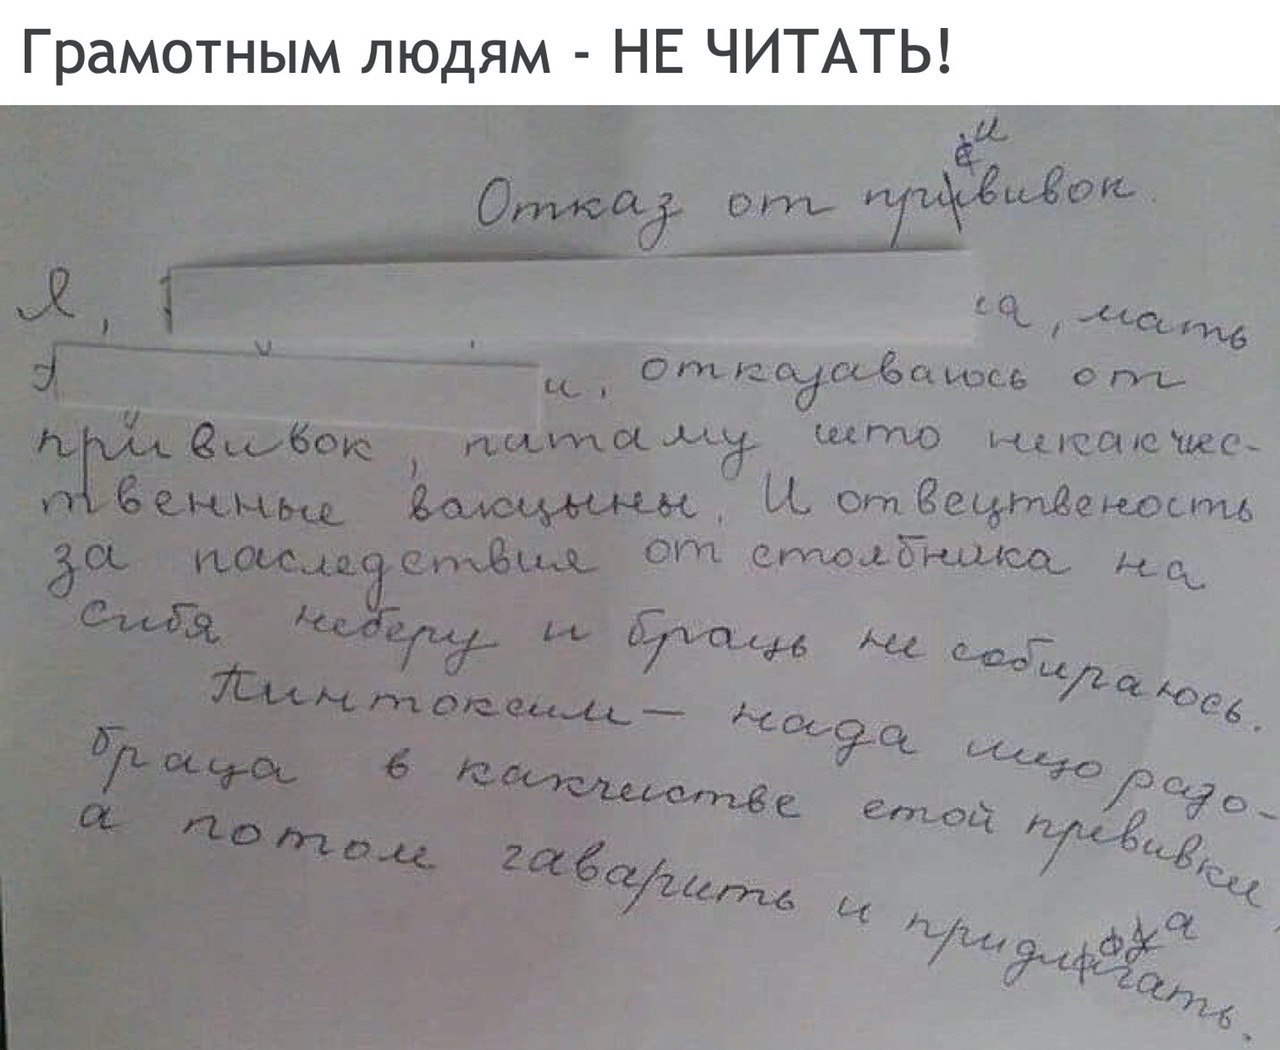 Грамотным людям - НЕ ЧИТАТЬ!
Отказ от прививок.
Я, са, мать
А и, отказаваюсь от
прививок, питаму што никакчес-
твенные вакцыны. И отвецтвеность
за паследствия от столбника на
сибя неберу и браць не собираюсь.
Пинтоксим — нада ищо разо-
браца в какчистве етой превивки,
а потом гаварить и придлагать.